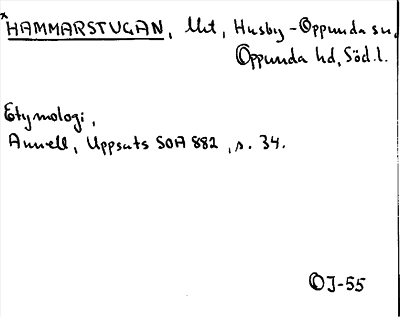 *HAMMARSTUGAN, lht, Husby-Oppunda sn,
Oppunda hd, Söd.l.
Etymologi,
Annell, Uppsats SOA 882, s. 34.
OJ-55